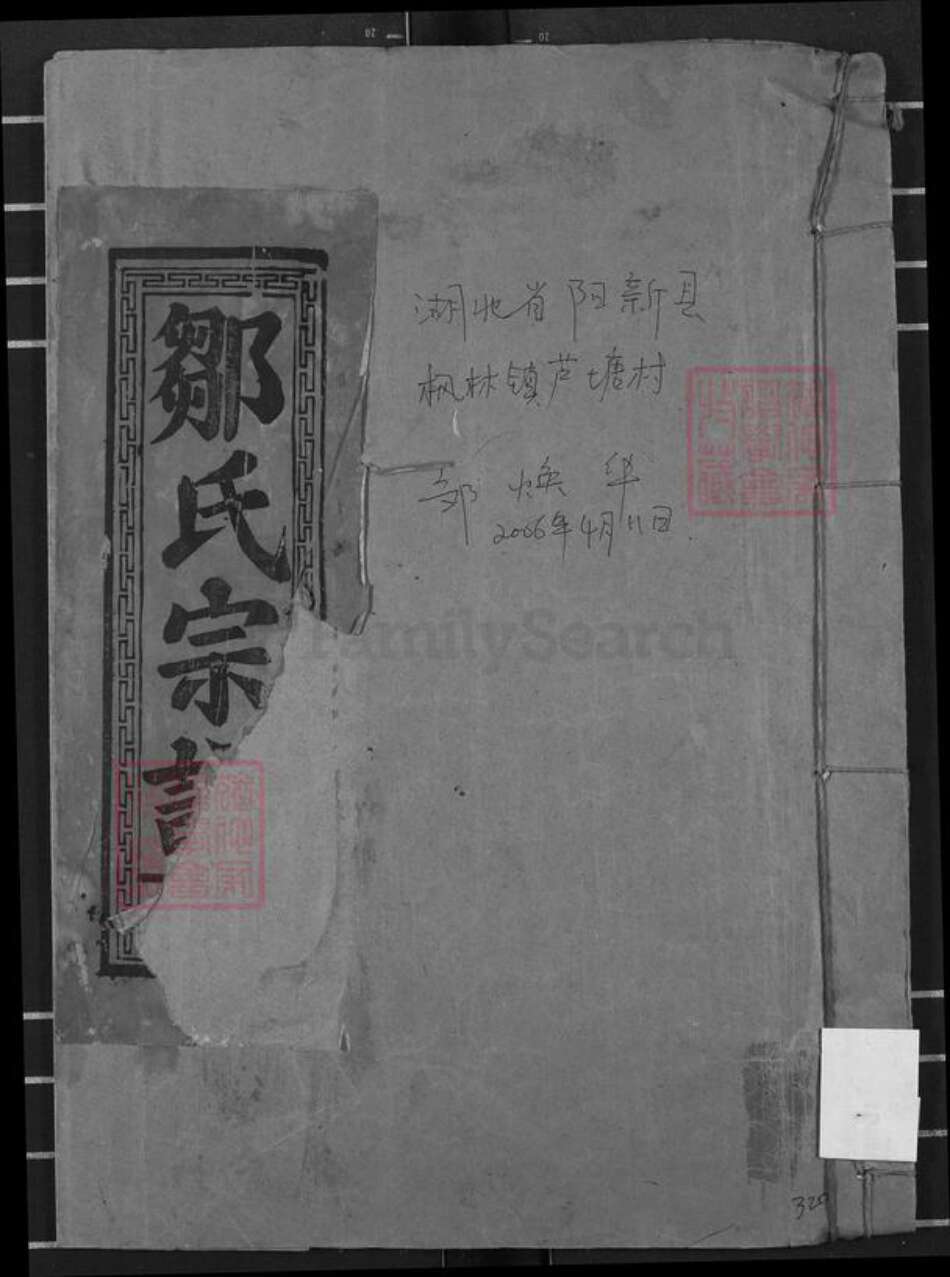 鄒氏宗
湖北省阳新县
枫林镇芦塘村
邹焕华
2006年4月11日
FamilySearch
320
20
20